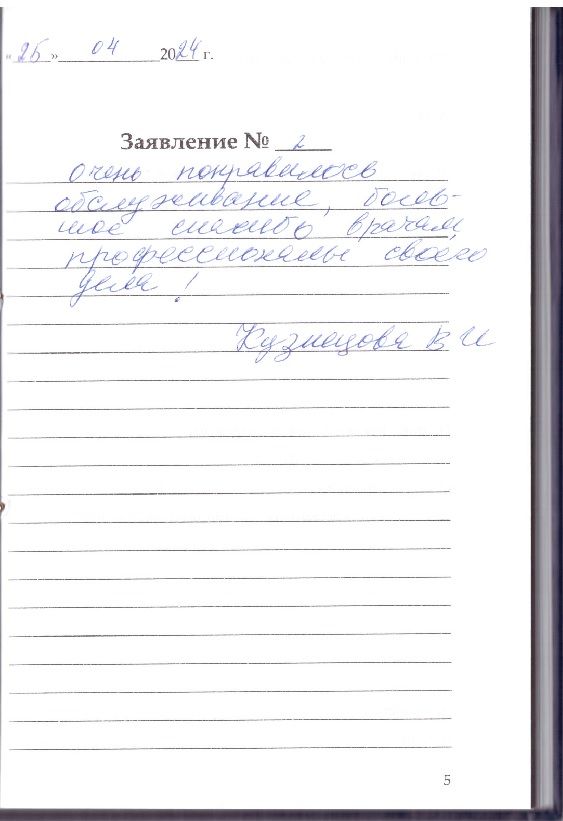 «25» 04 2024 г.
Заявление № 2
очень понравилось
обслуживание, боль-
шое спасибо врачам,
профессионалы своего
дела!
Кузнецова В И
5